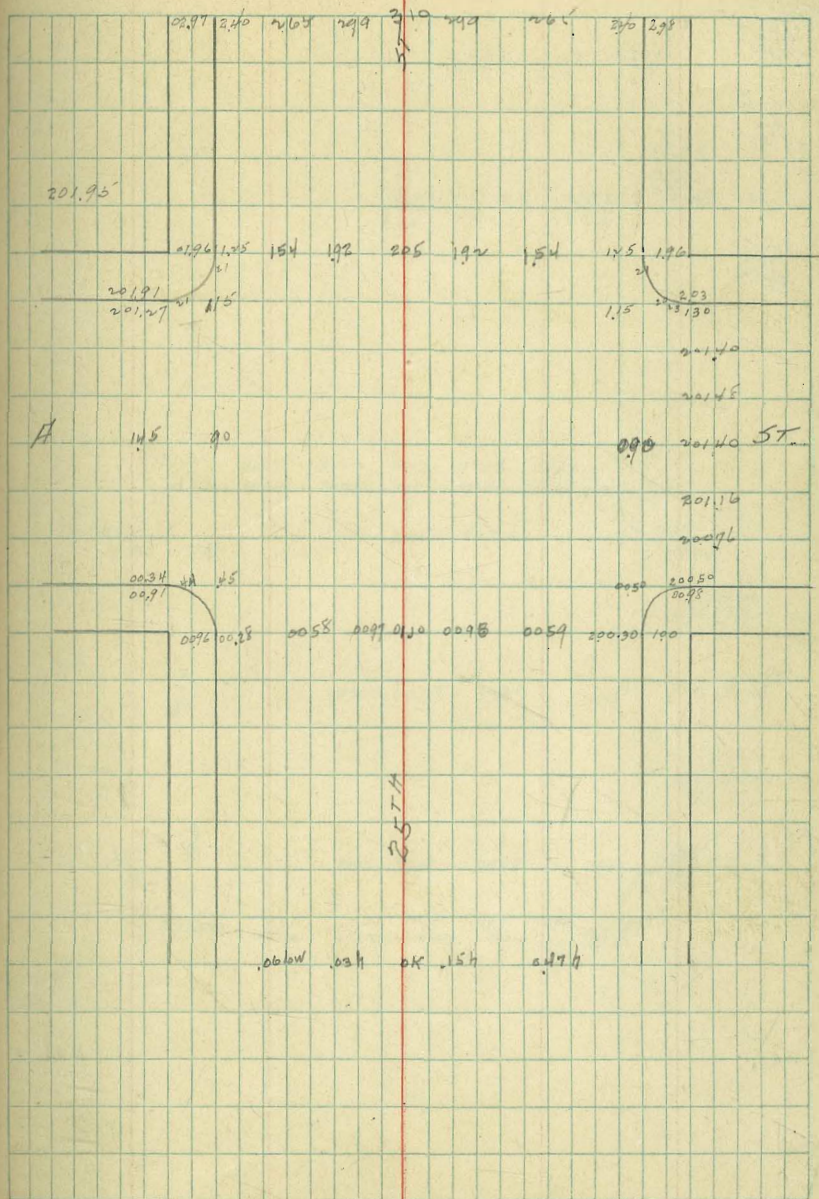 02.97 2.40 2.65 2.99 3.10 2.99 2.65 2.40 2.98
ST
201.95
01.96 1.25 1.54 1.92 2.05 1.92 1.54 1.25 1.96
21 21
201.91 21 1.15 1.15 2.03
201.27 1.30
201.40
201.48
A 1.45 .90 0.90 201.40 ST.
201.16
200.76
00.34 44 .45 00.50 200.50
00.91 00.98
00.96 00.28 00.58 00.97 01.10 00.98 00.59 200.30 1.00
25TH
.06 low .03 h OK .15 h 0.47 h